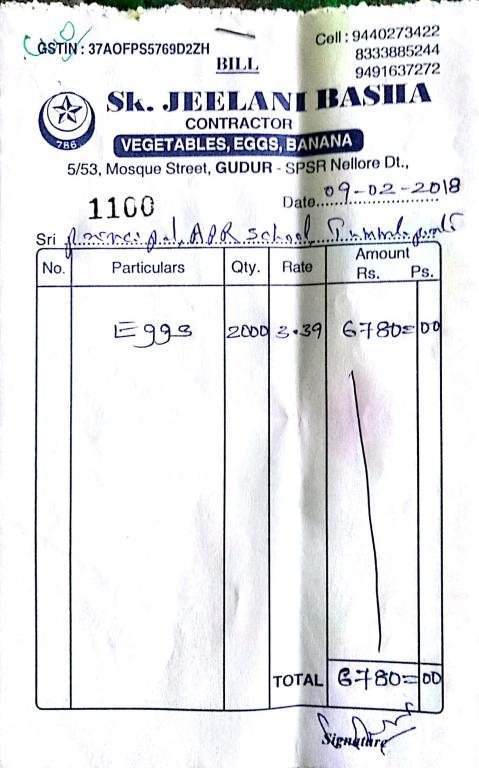 GSTIN : 37AOFPS5769D2ZH
Cell : 9440273422
8333885244
9491637272
BILL
Sk. JEELANI BASHA
CONTRACTOR
VEGETABLES, EGGS, BANANA
786
5/53, Mosque Street, GUDUR - SPSR Nellore Dt.,
1100
Date 09-02-2018
Sri Principal, APR School,
No. Particulars Qty. Rate Amount
Rs. Ps.
Eggs 2000 3.39 6780=00
TOTAL 6780=00
Signature